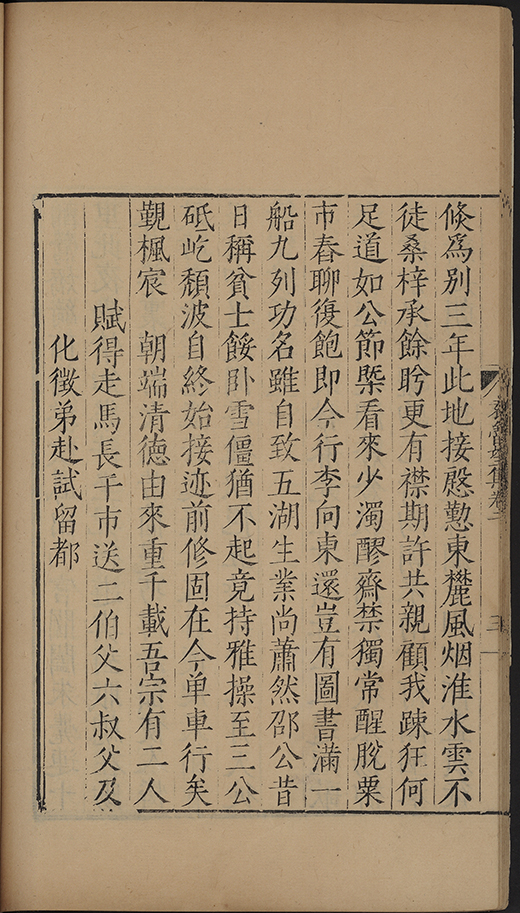 倐為別三年此地接慇懃東麓風烟淮水雲不
徒桑梓承餘盻更有襟期許共親顧我踈狂何
足道如公節槩看來少濁醪齋禁獨常醒脫粟
市舂聊復飽即今行李向東還豈有圖書滿一
船九列功名雖自致五湖生業尚蕭然邵公昔
日稱貧士餒卧雪僵猶不起竟持雅操至三公
砥屹頹波自終始接迹前修固在今單車行矣
覲楓宸 朝端清德由來重千載吾宗有二人
賦得走馬長干市送二伯父六叔父及
化徵弟赴試留都
集卷二
三